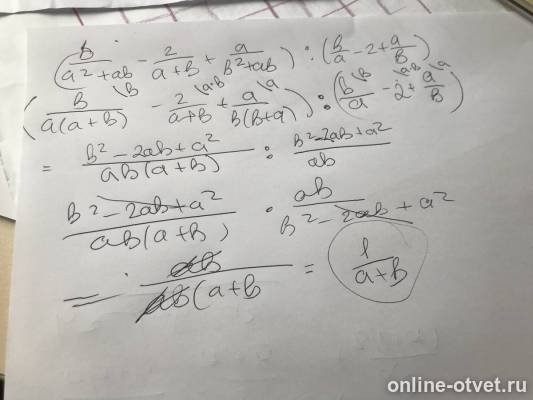 (b/(a²+ab) - 2/(a+b) + a/(b²+ab)) : (b/a - 2 + a/b)
(b/(a(a+b)) \b - 2/(a+b) \a·b + a/(b(b+a)) \a) : (b/a \b - 2 \a·b + a/b \a)
= (b²-2ab+a²)/(ab(a+b)) : (b²-2ab+a²)/ab
(b²-2ab+a²)/(ab(a+b)) · ab/(b²-2ab+a²)
= ab/(ab(a+b) = 1/(a+b)
online-otvet.ru